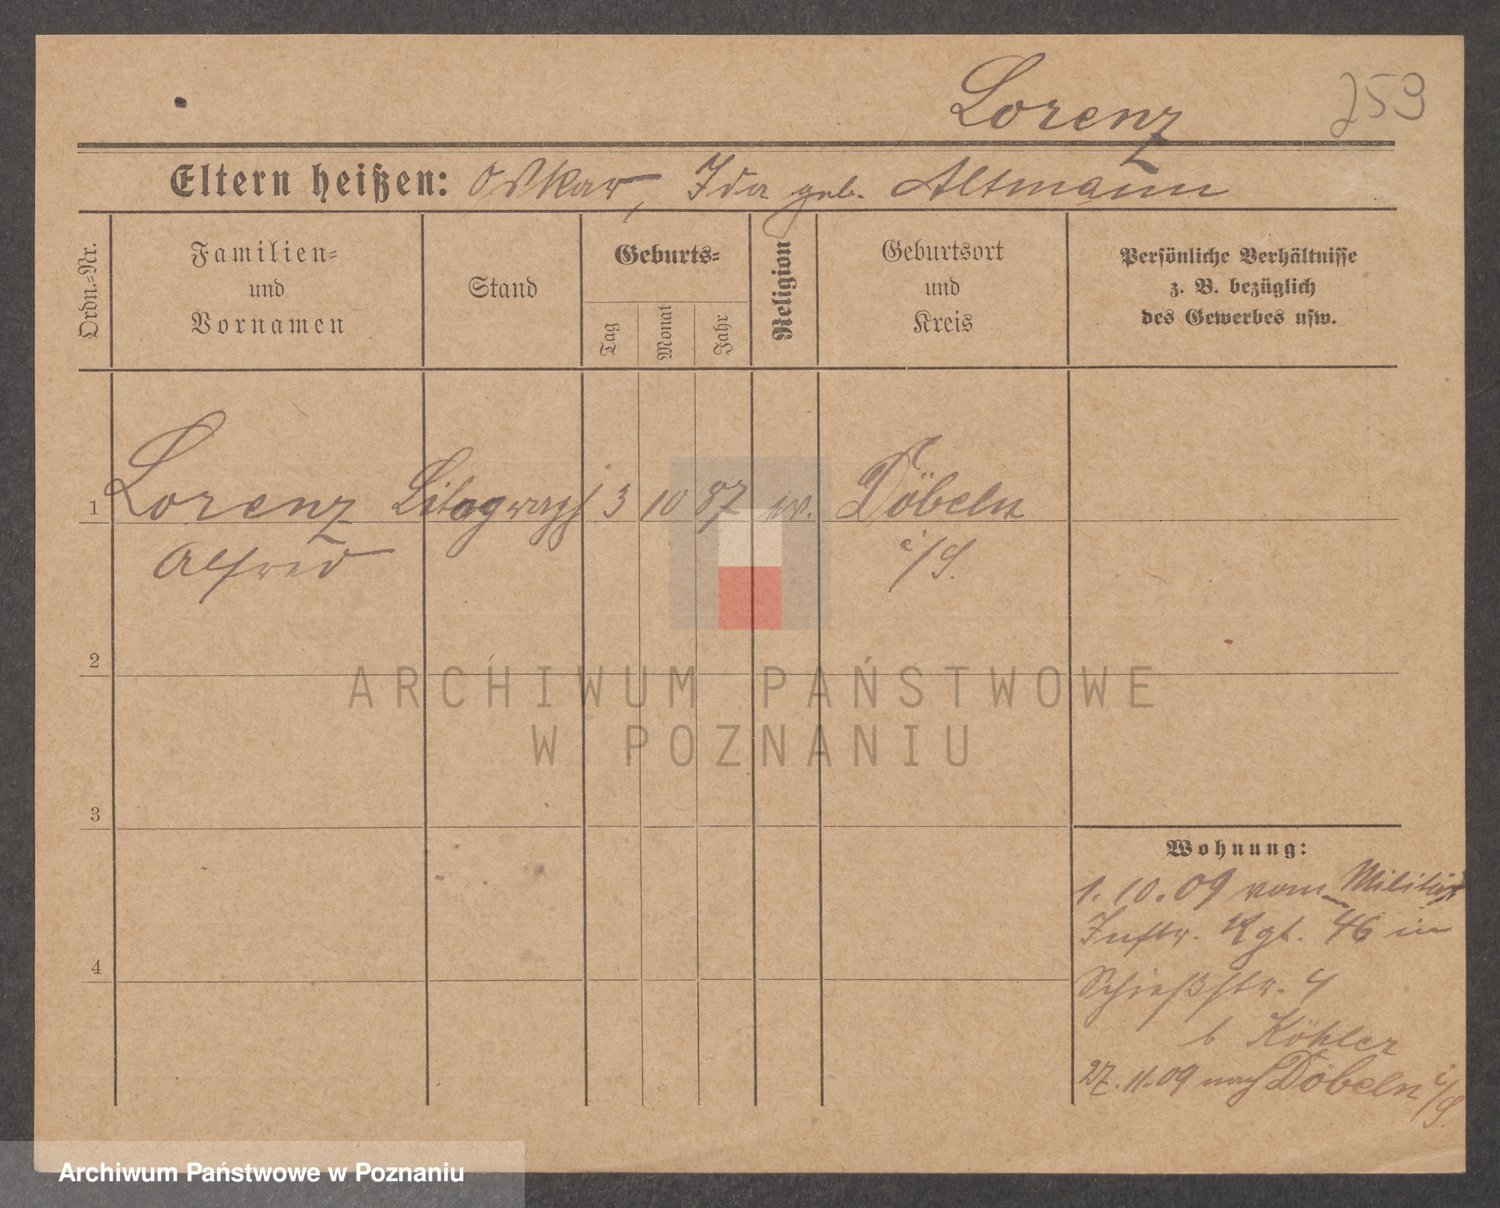 Lorenz 253
Eltern heißen: Oskar, Ida geb. Altmann
Ordn.=Nr.
Familien=
und
Vornamen
Stand
Geburts=
Tag
Monat
Jahr
Religion
Geburtsort
und
Kreis
Persönliche Verhältnisse
z. B. bezüglich
des Gewerbes usw.
1 Lorenz Litograph 3 10 87 ev. Döbeln
Alfred i/S.
2
3
4
Wohnung:
1. 10. 09 vom Militär
Inftr. Rgt. 46 in
Schießstr. 4
b Köhler
27. 11. 09 nach Döbeln i/S.
ARCHIWUM PAŃSTWOWE
W POZNANIU
Archiwum Państwowe w Poznaniu